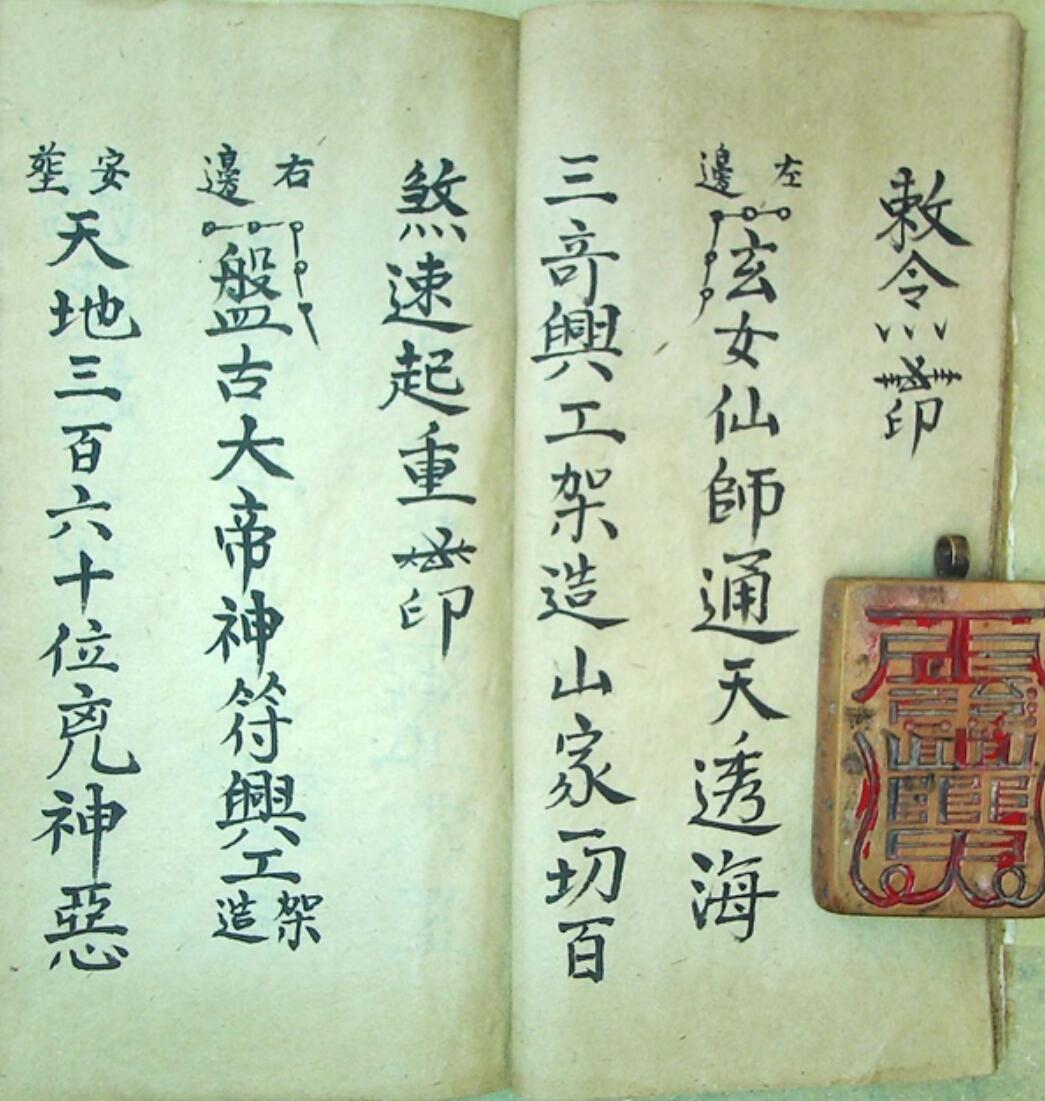 敕令印
左邊玄女仙師通天透海
三竒興工架造山家一切百
煞速起重印
右邊盤古大帝神符興工架造
安天地三百六十位兇神惡